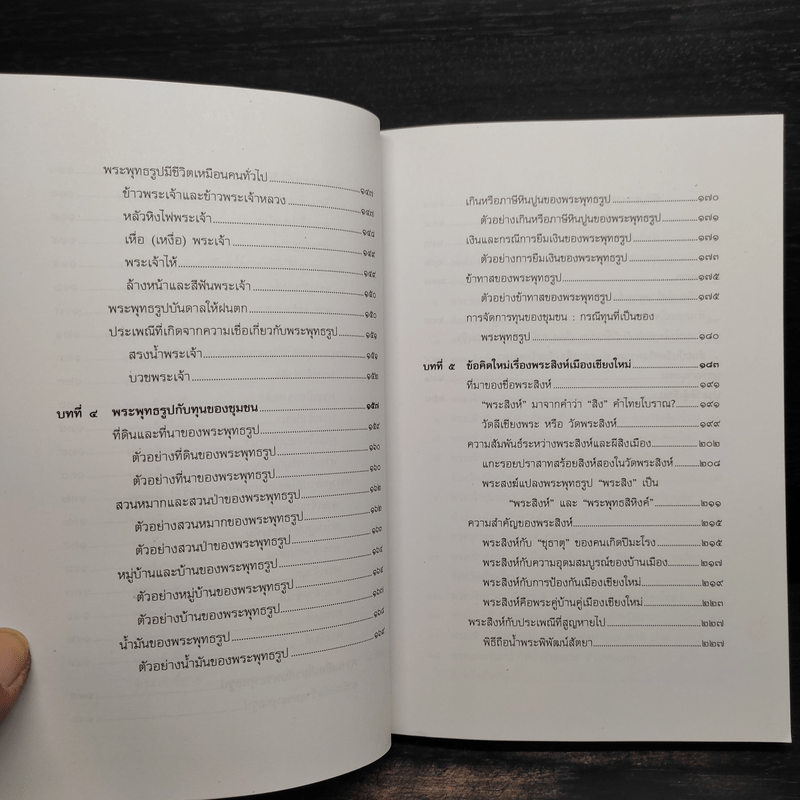 พระพุทธรูปมีชีวิตเหมือนคนทั่วไป ๑๔๗
ข้าวพระเจ้าและข้าวพระเจ้าหลวง ๑๔๗
หลัวหิงไฟพระเจ้า ๑๔๘
เหื่อ (เหงื่อ) พระเจ้า ๑๔๙
พระเจ้าไห้ ๑๔๙
ล้างหน้าและสีฟันพระเจ้า ๑๕๐
พระพุทธรูปบันดาลให้ฝนตก ๑๕๐
ประเพณีที่เกิดจากความเชื่อเกี่ยวกับพระพุทธรูป ๑๕๑
สรงน้ำพระเจ้า ๑๕๑
บวชพระเจ้า ๑๕๒
บทที่ ๔ พระพุทธรูปกับทุนของชุมชน ๑๕๗
ที่ดินและที่นาของพระพุทธรูป ๑๕๙
ตัวอย่างที่ดินของพระพุทธรูป ๑๖๐
ตัวอย่างที่นาของพระพุทธรูป ๑๖๐
สวนหมากและสวนป่าของพระพุทธรูป ๑๖๒
ตัวอย่างสวนหมากของพระพุทธรูป ๑๖๒
ตัวอย่างสวนป่าของพระพุทธรูป
หมู่บ้านและบ้านของพระพุทธรูป ๑๖๔
ตัวอย่างหมู่บ้านของพระพุทธรูป ๑๖๔
ตัวอย่างบ้านของพระพุทธรูป
น้ำมันของพระพุทธรูป
ตัวอย่างน้ำมันของพระพุทธรูป ๑๖๙
เกินหรือภาษีหินปูนของพระพุทธรูป ๑๗๐
ตัวอย่างเกินหรือภาษีหินปูนของพระพุทธรูป ๑๗๑
เงินและกรณีการยืมเงินของพระพุทธรูป ๑๗๑
ตัวอย่างการยืมเงินของพระพุทธรูป ๑๗๓
ข้าทาสของพระพุทธรูป ๑๗๕
ตัวอย่างข้าทาสของพระพุทธรูป ๑๗๕
การจัดการทุนของชุมชน : กรณีทุนที่เป็นของ
พระพุทธรูป ๑๘๐
บทที่ ๕ ข้อคิดใหม่เรื่องพระสิงห์เมืองเชียงใหม่ ๑๘๓
ที่มาของชื่อพระสิงห์ ๑๙๑
“พระสิงห์” มาจากคำว่า “สิง” คำไทยโบราณ? ๑๙๑
วัดลีเชียงพระ หรือ วัดพระสิงห์ ๑๙๙
ความสัมพันธ์ระหว่างพระสิงห์และผีสิงเมือง ๒๐๒
แกะรอยปราสาทสร้อยสิงห์สองในวัดพระสิงห์ ๒๐๘
พระสงฆ์แปลงพระพุทธรูป “พระสิง” เป็น
“พระสิงห์” และ “พระพุทธสิหิงค์” ๒๑๑
ความสำคัญของพระสิงห์ ๒๑๕
พระสิงห์กับ “ชุธาตุ” ของคนเกิดปีมะโรง ๒๑๕
พระสิงห์กับความอุดมสมบูรณ์ของบ้านเมือง ๒๑๗
พระสิงห์กับการป้องกันเมืองเชียงใหม่ ๒๑๙
พระสิงห์คือพระคู่บ้านคู่เมืองเชียงใหม่ ๒๒๓
พระสิงห์กับประเพณีที่สูญหายไป ๒๒๗
พิธีถือน้ำพระพิพัฒน์สัตยา ๒๒๗